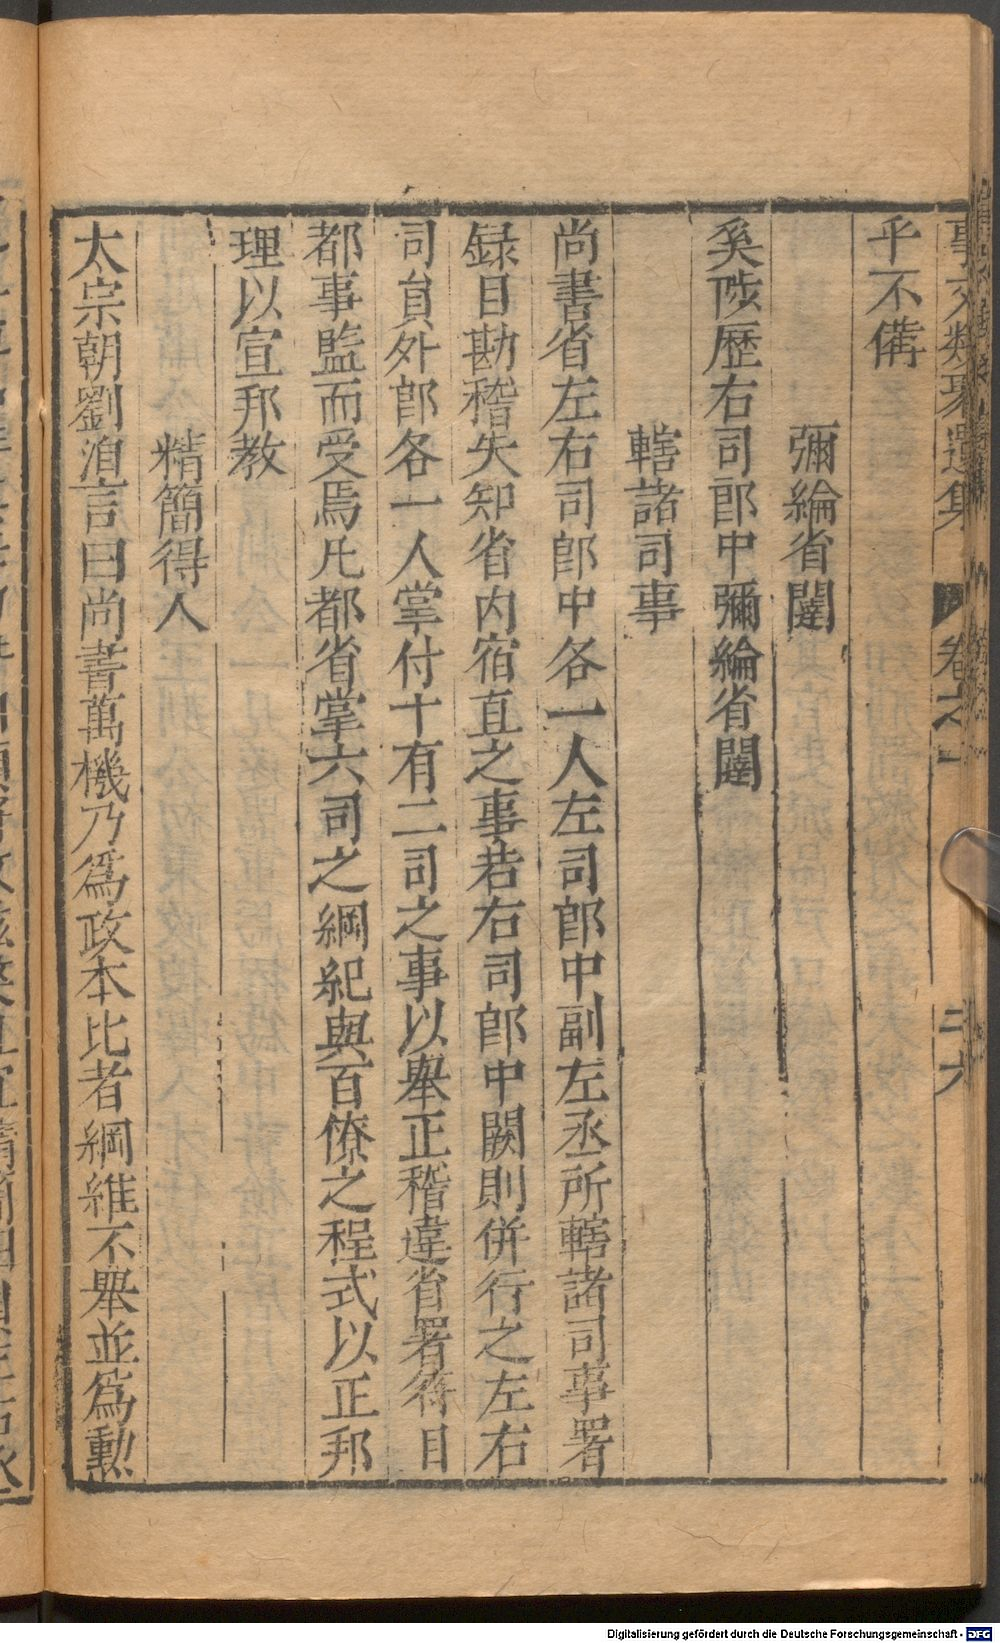 事文類聚遺集 卷之十 二十六
乎不備
彌綸省闥
奚陟歷右司郎中彌綸省闥
轄諸司事
尚書省左右司郎中各一人左司郎中副左丞所轄諸司事署
録目勘稽失知省内宿直之事若右司郎中闕則併行之左右
司貟外郎各一人掌付十有二司之事以舉正稽違省署符目
都事監而受焉凡都省掌六司之綱紀與百僚之程式以正邦
理以宣邦教
精簡得人
太宗朝劉洎言曰尚書萬機乃爲政本比者綱維不舉並爲勳
Digitalisierung gefördert durch die Deutsche Forschungsgemeinschaft - DFG